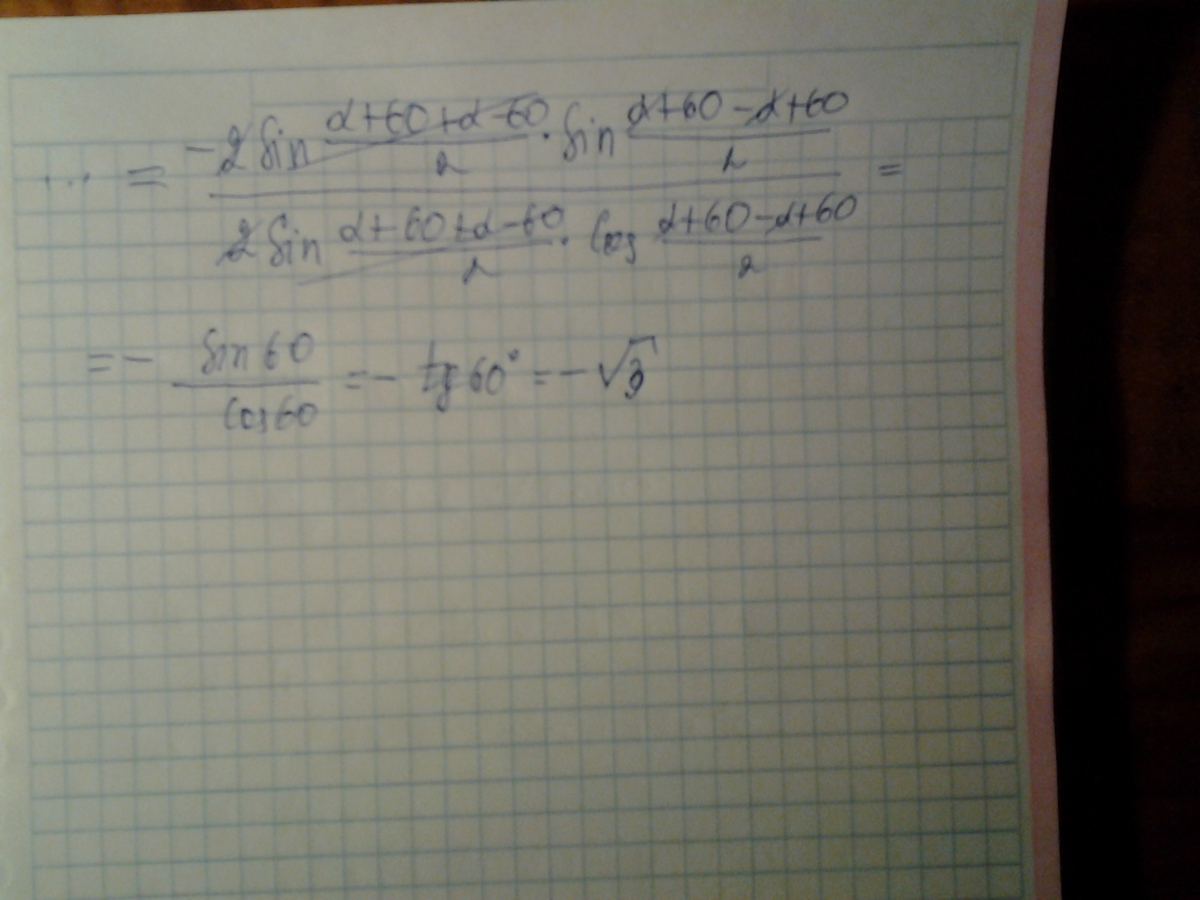 ... = (-2 sin (α+60+α-60)/2 · sin (α+60-α+60)/2) / (2 sin (α+60+α-60)/2 · cos (α+60-α+60)/2) =
= - sin 60 / cos 60 = - tg 60° = - √3